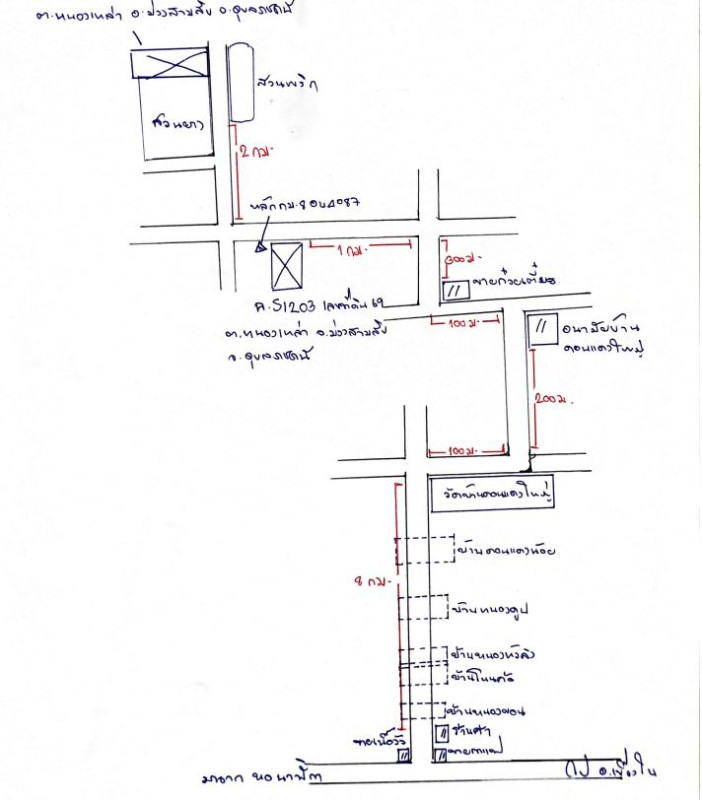 ต.หนองเหล่า อ.ม่วงสามสิบ จ.อุบลราชธานี
สวนพริก
สวนยาง
2 กม.
หลักกม.
1 กม.
300 ม.
ขายก๋วยเตี๋ยว
ค.51203 เลขที่ดิน 69
ต.หนองเหล่า อ.ม่วงสามสิบ
จ.อุบลราชธานี
100 ม.
อนามัยบ้าน
ดอนแดงใหญ่
200 ม.
100 ม.
วัดบ้านดอนแดงใหญ่
บ้านดอนแดงน้อย
8 กม.
บ้านหนองคูป
บ้านหนองหัวลิง
บ้านหนองผอน
ร้านค้า
ขายเนื้อวัว
ขายกาแฟ
มาจาก
ไป อ.เขื่องใน